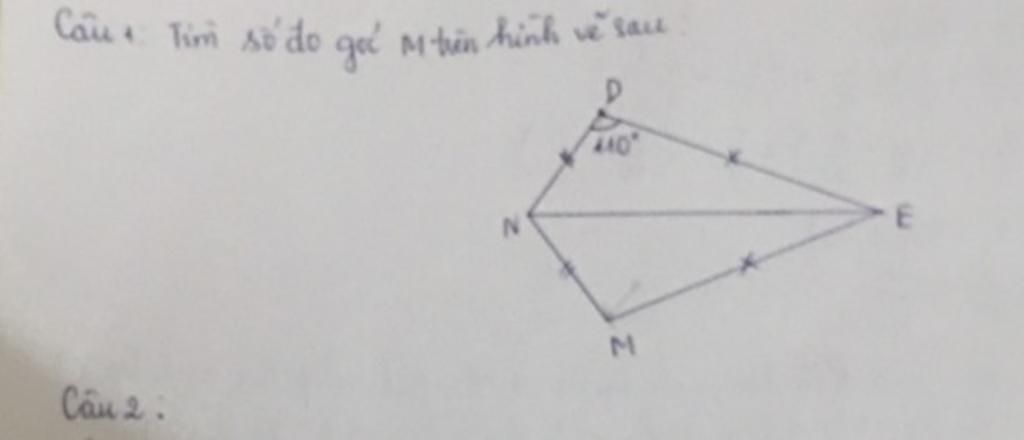 Câu 1: Tìm số đo góc M trên hình vẽ sau.
D
110°
N
E
M
Câu 2: